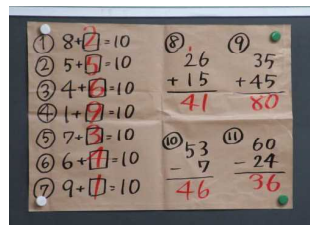 ① 8+2=10
② 5+5=10
③ 4+6=10
④ 1+9=10
⑤ 7+3=10
⑥ 6+4=10
⑦ 9+1=10
⑧
1
26
+15
41
⑨
35
+45
80
⑩
53
- 7
46
⑪
60
-24
36